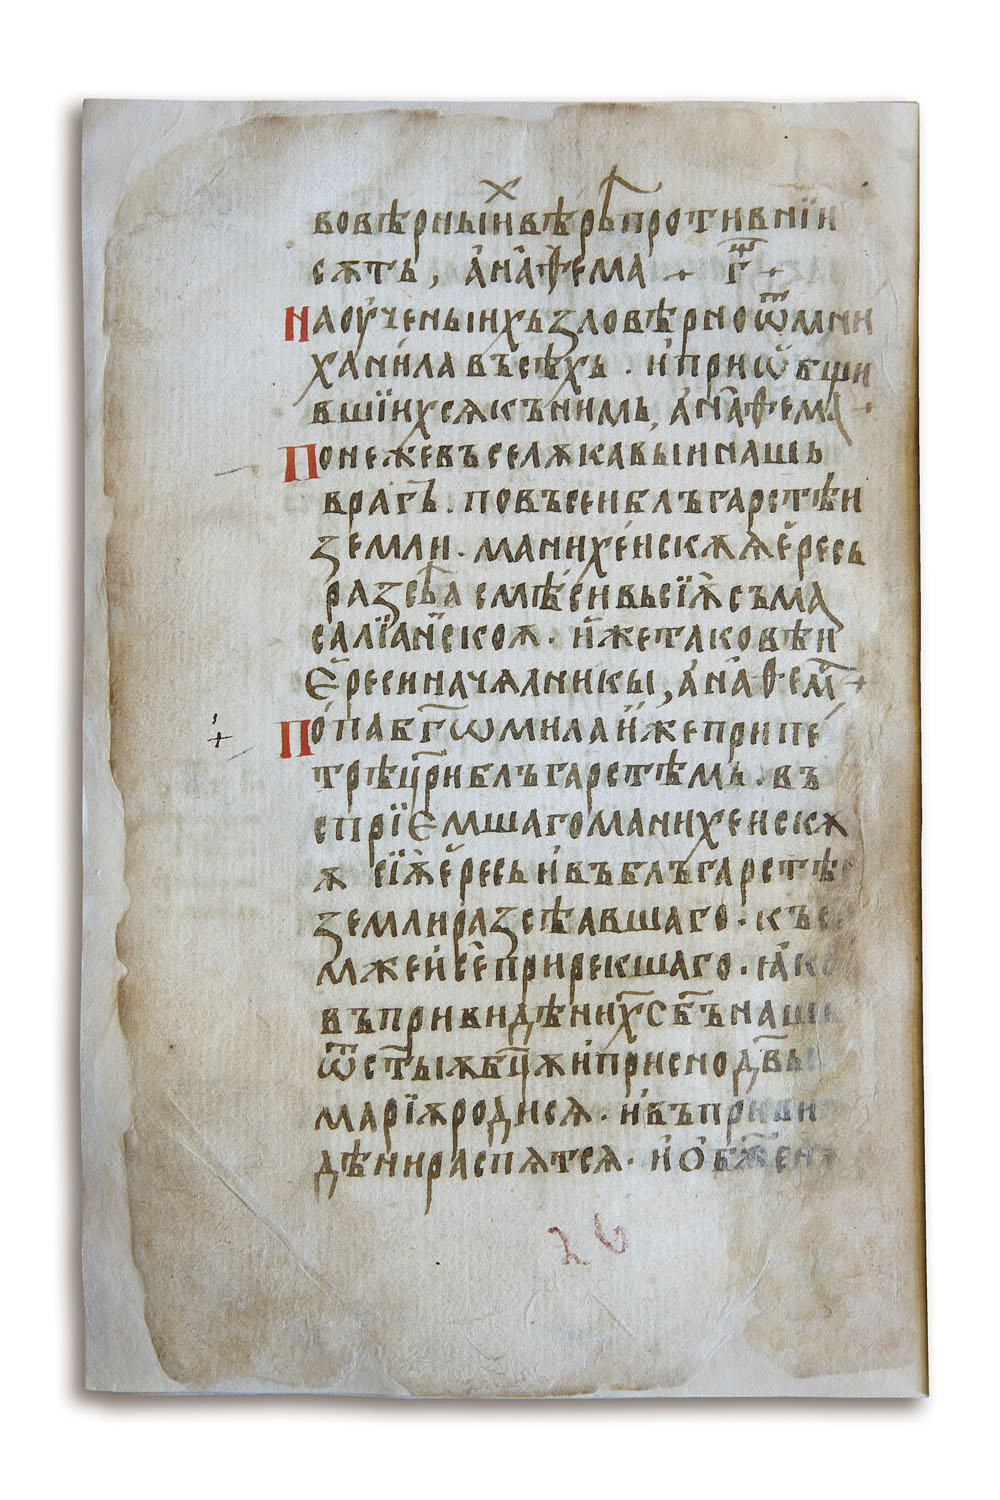 вовѣрныи̑ⷯ вѣрѣ противнїи
сѫть, а҆на҆ѳема · г҃·
Наоу҆ченыи҆хъ зловѣрно ѿ ми
хаи҆ла въсѣхъ · и҆ приѡ҆бщи
вшїихсѧ къ нимь, а҆на҆ѳема
Понеже въселѫкавыи нашь
врагъ · по въсеи блъгарстѣи
земли · манихе́искѫѫ е҆ресь
разсѣа смѣси въ сїѫ̀ съ ма
салїа́нскоѫ · и҆же таковѣи
е҆реси начѧлникы, а҆на҆ѳем
По́па бг҃ѡмила и҆же при пе́
трѣ цр҃и блъгарстѣмь · въ
спрїемшаго манихеискѫ
ѫ сїѫ̀ е҆ресь и҆ въ блъгарстѣ
земли разсѣавшаго · къ се
мѫже и҆ се́ прирекшаго · ꙗ҆ко
въ привидѣни х҃с б҃ъ нашь
ѿ ст҃ыѫ бц҃ѫ и҆ приснод҃вы
марїѫ родисѧ · и҆ въ приви
дѣни распѧтсѧ · и҆ ѻ҆бж҃енѫ
26